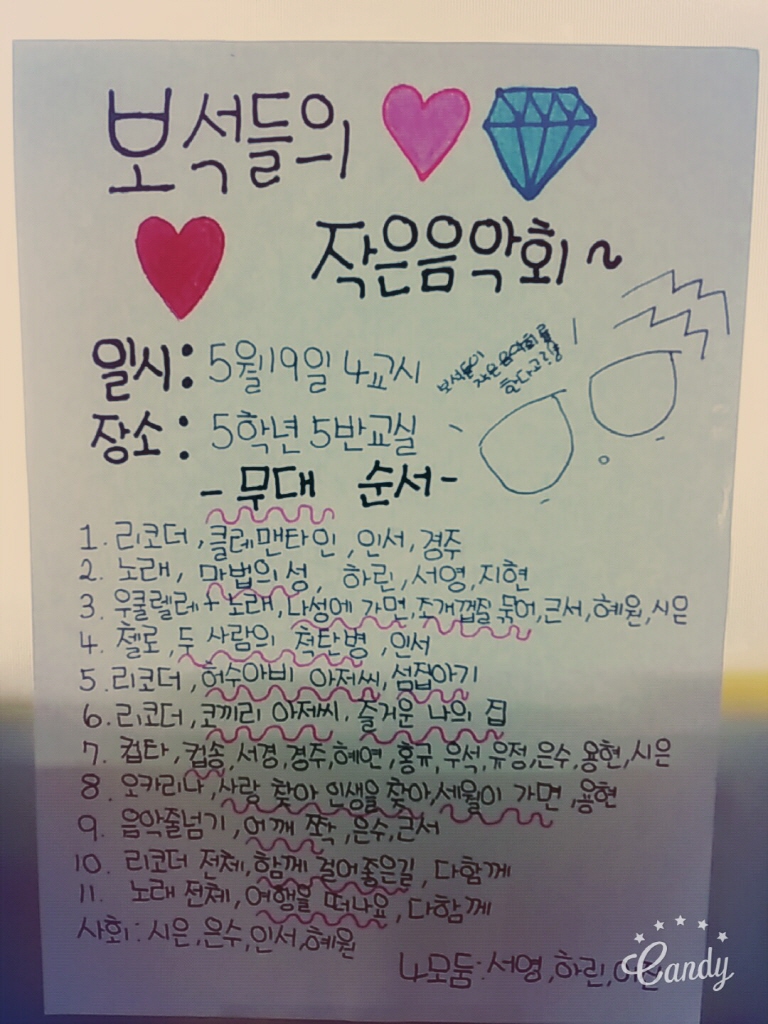 보석들의
작은음악회~
일시: 5월19일 4교시
장소: 5학년 5반교실
보석들이
작은 음악회를
한다고?!
-무대 순서-
1. 리코더, 클레멘타인, 인서, 경주
2. 노래, 마법의 성, 하린, 서영, 지현
3. 우쿨렐레+노래, 나성에 가면, 조개껍질 묶어, 은서, 혜원, 시은
4. 첼로, 두 사람의 척탄병, 인서
5. 리코더, 허수아비 아저씨, 섬집아기
6. 리코더, 코끼리 아저씨, 즐거운 나의 집
7. 컵타, 컵송, 서경, 경주, 혜연, 홍규, 우석, 유정, 은수, 용현, 시은
8. 오카리나, 사랑 찾아 인생을 찾아, 세월이 가면, 용현
9. 음악줄넘기, 어깨 쫙, 은수, 은서
10. 리코더 전체, 함께 걸어좋은길, 다함께
11. 노래 전체, 여행을 떠나요, 다함께
사회: 시은, 은수, 인서, 혜원
4모둠: 서영, 하린,
Candy